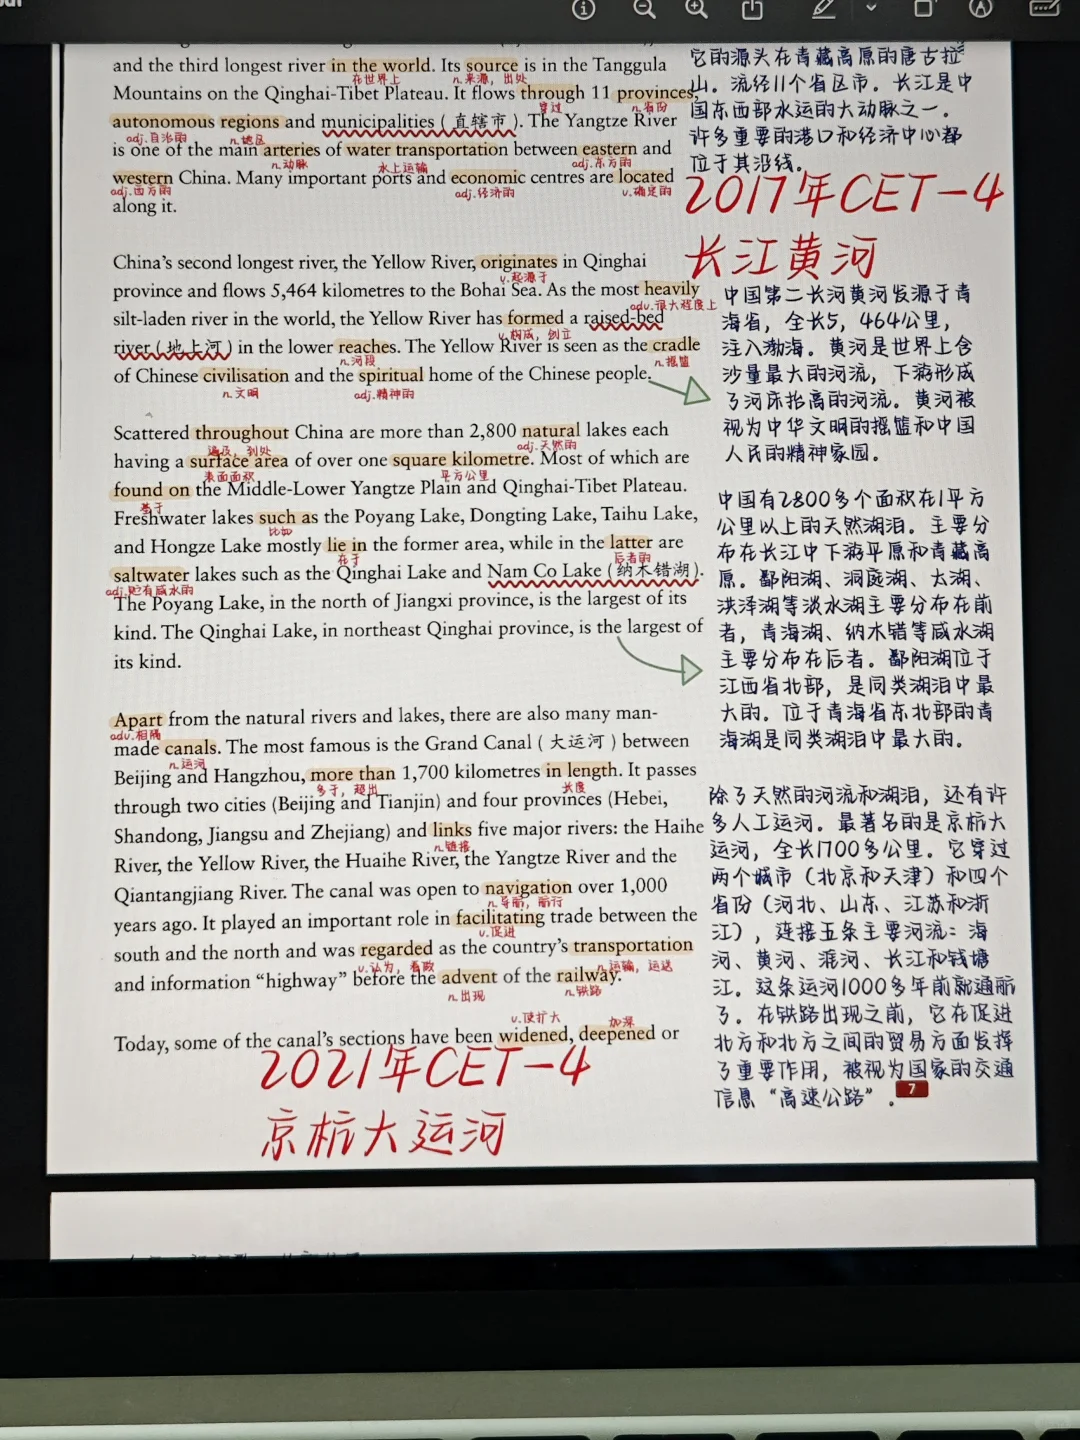 and the third longest river in the world. Its source is in the Tanggula
在世界上
n.来源，出处
Mountains on the Qinghai-Tibet Plateau. It flows through 11 provinces,
穿过
n.省份
autonomous regions and municipalities (直辖市). The Yangtze River
adj.自治的
n.地区
is one of the main arteries of water transportation between eastern and
n.动脉
水上运输
adj.东方的
western China. Many important ports and economic centres are located
adj.西方的
adj.经济的
v.确定的
along it.
它的源头在青藏高原的唐古拉
山。流经11个省区市。长江是中
国东西部水运的大动脉之一。
许多重要的港口和经济中心都
位于其沿线。
2017年CET-4
长江黄河
China's second longest river, the Yellow River, originates in Qinghai
v.起源于
province and flows 5,464 kilometres to the Bohai Sea. As the most heavily
adv.很大程度上
silt-laden river in the world, the Yellow River has formed a raised-bed
v.构成，创立
river (地上河) in the lower reaches. The Yellow River is seen as the cradle
n.河段
n.摇篮
of Chinese civilisation and the spiritual home of the Chinese people.
n.文明
adj.精神的
中国第二长河黄河发源于青
海省，全长5，464公里，
注入渤海。黄河是世界上含
沙量最大的河流，下游形成
了河床抬高的河流。黄河被
视为中华文明的摇篮和中国
人民的精神家园。
Scattered throughout China are more than 2,800 natural lakes each
遍及，到处
adj.天然的
having a surface area of over one square kilometre. Most of which are
表面面积
平方公里
found on the Middle-Lower Yangtze Plain and Qinghai-Tibet Plateau.
基于
Freshwater lakes such as the Poyang Lake, Dongting Lake, Taihu Lake,
比如
and Hongze Lake mostly lie in the former area, while in the latter are
在于
后者的
saltwater lakes such as the Qinghai Lake and Nam Co Lake (纳木错湖).
adj.贮有咸水的
The Poyang Lake, in the north of Jiangxi province, is the largest of its
kind. The Qinghai Lake, in northeast Qinghai province, is the largest of
its kind.
中国有2800多个面积在1平方
公里以上的天然湖泪。主要分
布在长江中下游平原和青藏高
原。鄱阳湖、洞庭湖、太湖、
洪泽湖等淡水湖主要分布在前
者，青海湖、纳木错等咸水湖
主要分布在后者。鄱阳湖位于
江西省北部，是同类湖泪中最
大的。位于青海省东北部的青
海湖是同类湖泪中最大的。
Apart from the natural rivers and lakes, there are also many man-
adv.相隔
made canals. The most famous is the Grand Canal (大运河) between
n.运河
Beijing and Hangzhou, more than 1,700 kilometres in length. It passes
多于，超出
长度
through two cities (Beijing and Tianjin) and four provinces (Hebei,
Shandong, Jiangsu and Zhejiang) and links five major rivers: the Haihe
n.链接
River, the Yellow River, the Huaihe River, the Yangtze River and the
Qiantangjiang River. The canal was open to navigation over 1,000
n.导航，航行
years ago. It played an important role in facilitating trade between the
v.促进
south and the north and was regarded as the country's transportation
v.认为，看做
n.运输，运送
and information “highway” before the advent of the railway.
n.出现
n.铁路
除了天然的河流和湖泪，还有许
多人工运河。最著名的是京杭大
运河，全长1700多公里。它穿过
两个城市（北京和天津）和四个
省份（河北、山东、江苏和浙
江），连接五条主要河流：海
河、黄河、淮河、长江和钱塘
江。这条运河1000多年前就通航
了。在铁路出现之前，它在促进
北方和北方之间的贸易方面发挥
了重要作用，被视为国家的交通
信息“高速公路”。
7
v.使扩大
加深
Today, some of the canal's sections have been widened, deepened or
2021年CET-4
京杭大运河